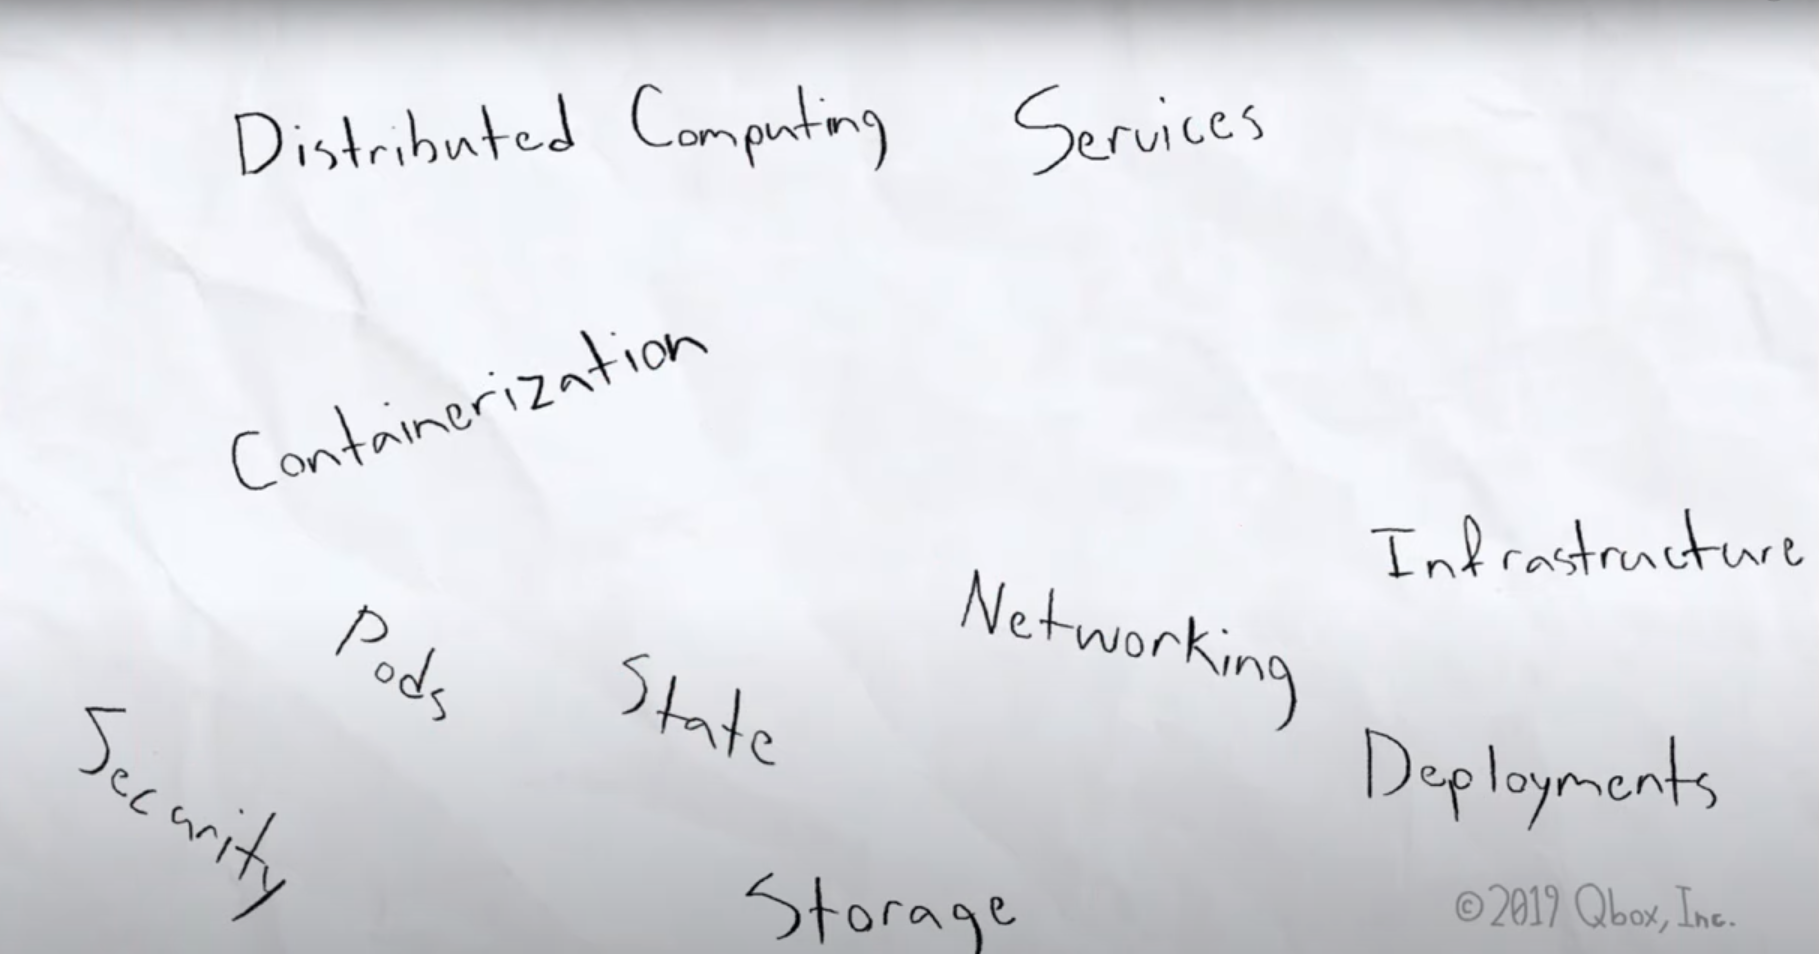 Distributed Computing Services
Containerization
Infrastructure
Networking
Pods
State
Security
Deployments
Storage
©2019 Qbox, Inc.